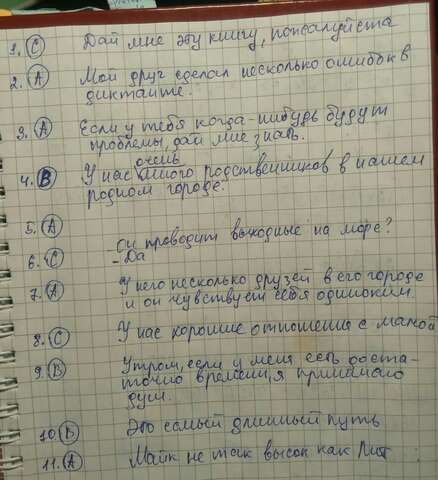 1. C Дай мне эту книгу, пожалуйста
2. A Мой друг сделал несколько ошибок в
диктанте.
3. A Если у тебя когда-нибудь будут
проблемы, дай мне знать.
очень
4. B У нас много родственников в нашем
родном городе.
5. A
Он проводит выходные на море?
6. C - Да
7. A У него несколько друзей в его городе
и он чувствует себя одиноким.
8. C У нас хорошие отношения с мамой
9. B Утром, если у меня есть доста-
точно времени, я принимаю
душ.
10. B Это самый длинный путь
11. A Майк не так высок как Пит